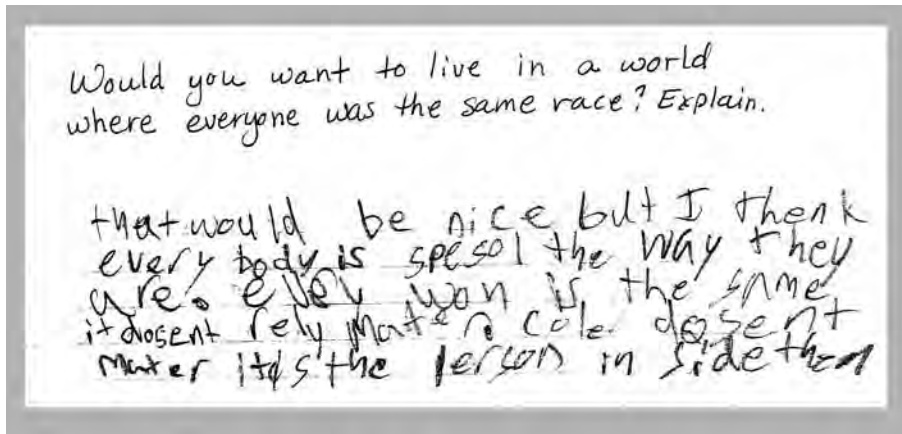 Would you want to live in a world
where everyone was the same race? Explain.
that would be nice but I thenk
every body is spesol the way they
are. evey won is the same
it dosent rely mater cole dosent
mater it's the person in side them